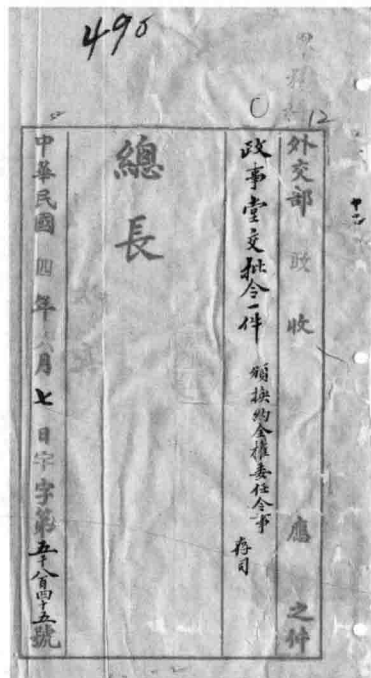 490
12
外交部 政收 應之件
政事堂交批令一件 頒換約全權委任令事 存司
總長
中華民國四年六月七日字字第五千八百四十五號